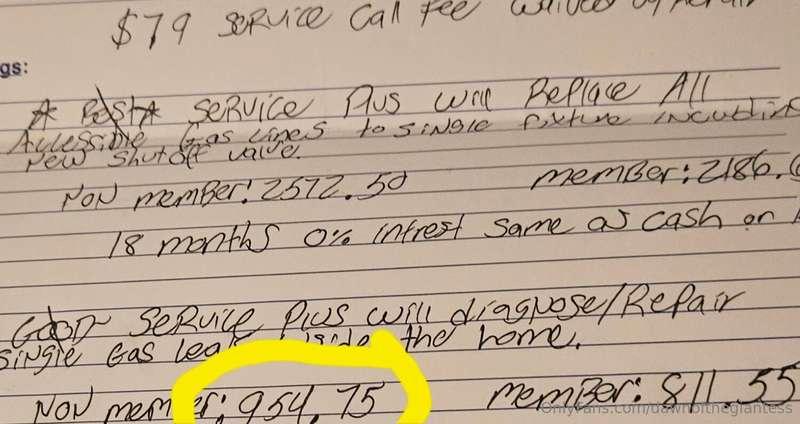 $79 SERVICE Call Fee waived by Repair
gs:
* BEST * SERVICE Plus will Replace All
Accessible Gas Lines to single fixture incuding
New shutoff valve.
NON member: 2572.50 member: 2186.
18 months 0% intrest same as cash on
GOOD SERVICE Plus will diagnose/Repair
single Gas leak inside the home.
NON member: 954.75 member: 811.55
OnlyFans.com/dawnofthegiantess